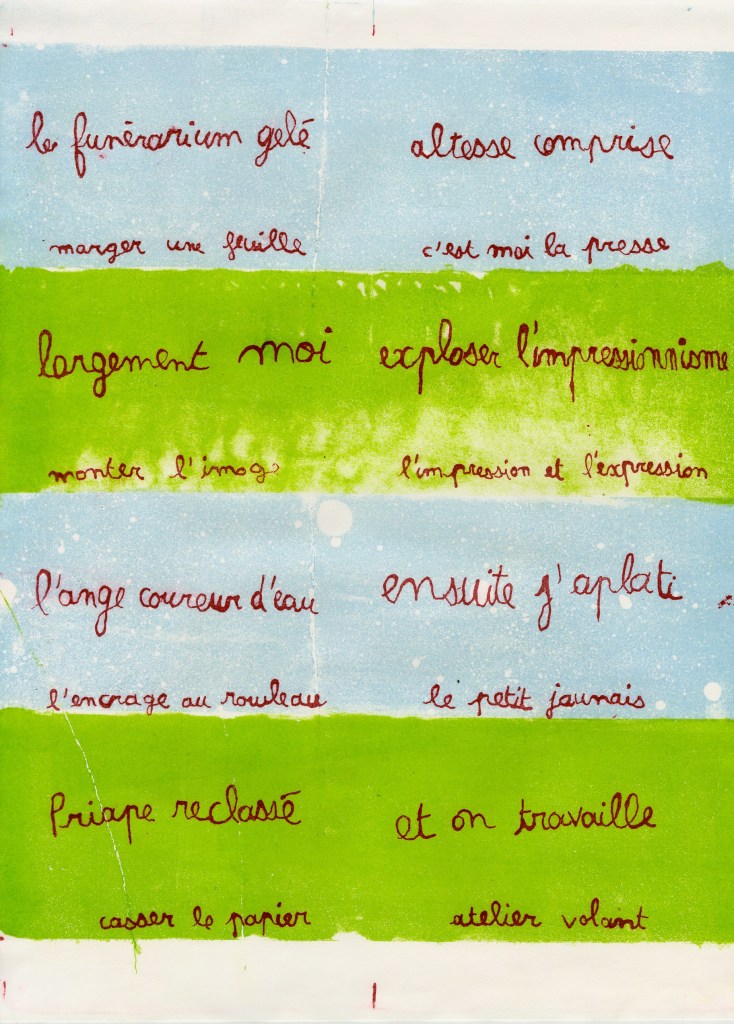 le funérarium gelé
altesse comprise
marger une feuille
c'est moi la presse
largement moi
exploser l'impressionnisme
monter l'image
l'impression et l'expression
l'ange coureur d'eau
ensuite j'aplati
l'encrage au rouleau
le petit jaunais
Priape reclassé
et on travaille
casser le papier
atelier volant